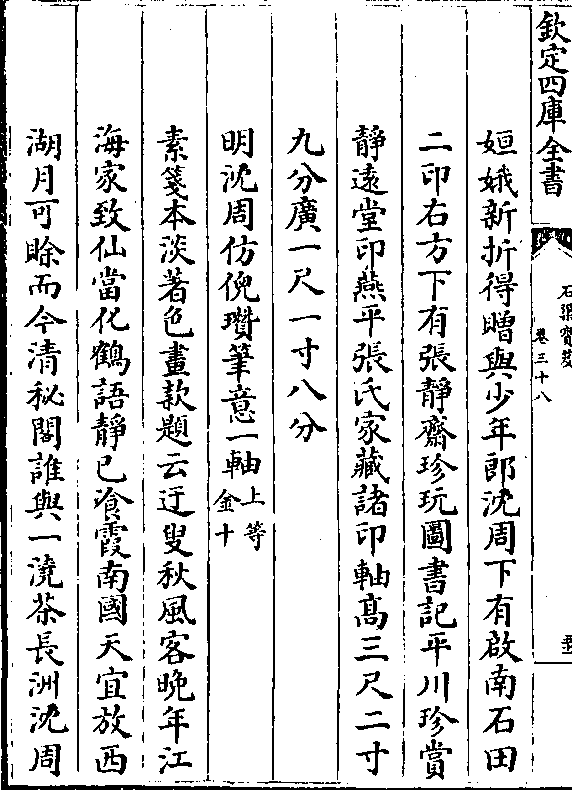 欽定四庫全書
石渠寳笈
卷三十八
姮娥新折得贈與少年郎沈周下有啟南石田
二印右方下有張靜齋珍玩圖書記平川珍賞
靜逺堂印燕平張氏家藏諸印軸髙三尺二寸
九分廣一尺一寸八分
明沈周仿倪瓚筆意一軸上等
金十
素箋本淡著色畫款題云迂叟秋風客晚年江
海家致仙當化鶴語靜已飡霞南國天宜放西
湖月可賖而今清秘閣誰與一澆茶長洲沈周